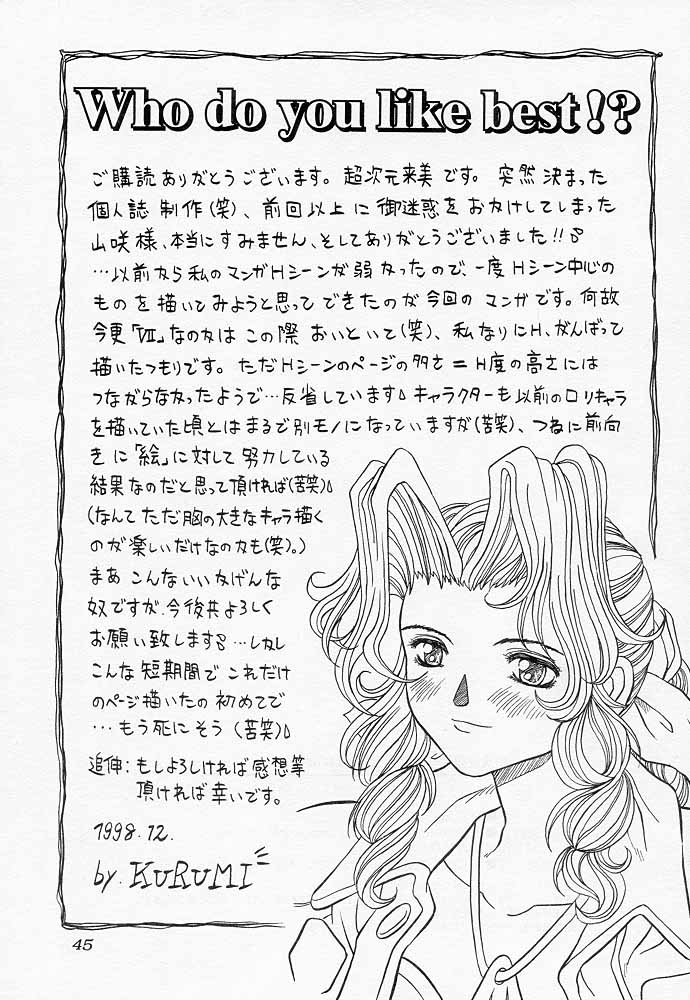 Who do you like best!?
ご購読ありがとうございます。超次元来美です。突然決まった
個人誌制作(笑)、前回以上に御迷惑をおかけしてしまった
山咲様、本当にすみません、そしてありがとうございました!!
…以前から私のマンガHシーンが弱かったので、一度Hシーン中心の
ものを描いてみようと思ってできたのが今回のマンガです。何故
今更「Ⅶ」なのかはこの際おいといて(笑)、私なりにH、がんばって
描いたつもりです。ただHシーンのページの多さ=H度の高さには
つながらなかったようで…反省しています。キャラクターも以前のロリキャラ
を描いていた頃とはまるで別モノになっていますが(苦笑)、つねに前向
きに「絵」に対して努力している
結果なのだと思って頂ければ(苦笑)。
(なんてただ胸の大きなキャラ描く
のが楽しいだけなのかも(笑)。)
まあこんないいかげんな
奴ですが、今後共よろしく
お願い致します。…しかし
こんな短期間でこれだけ
のページ描いたの初めてで
…もう死にそう(苦笑)。
追伸:もしよろしければ感想等
頂ければ幸いです。
1998.12.
by.KURUMI
45